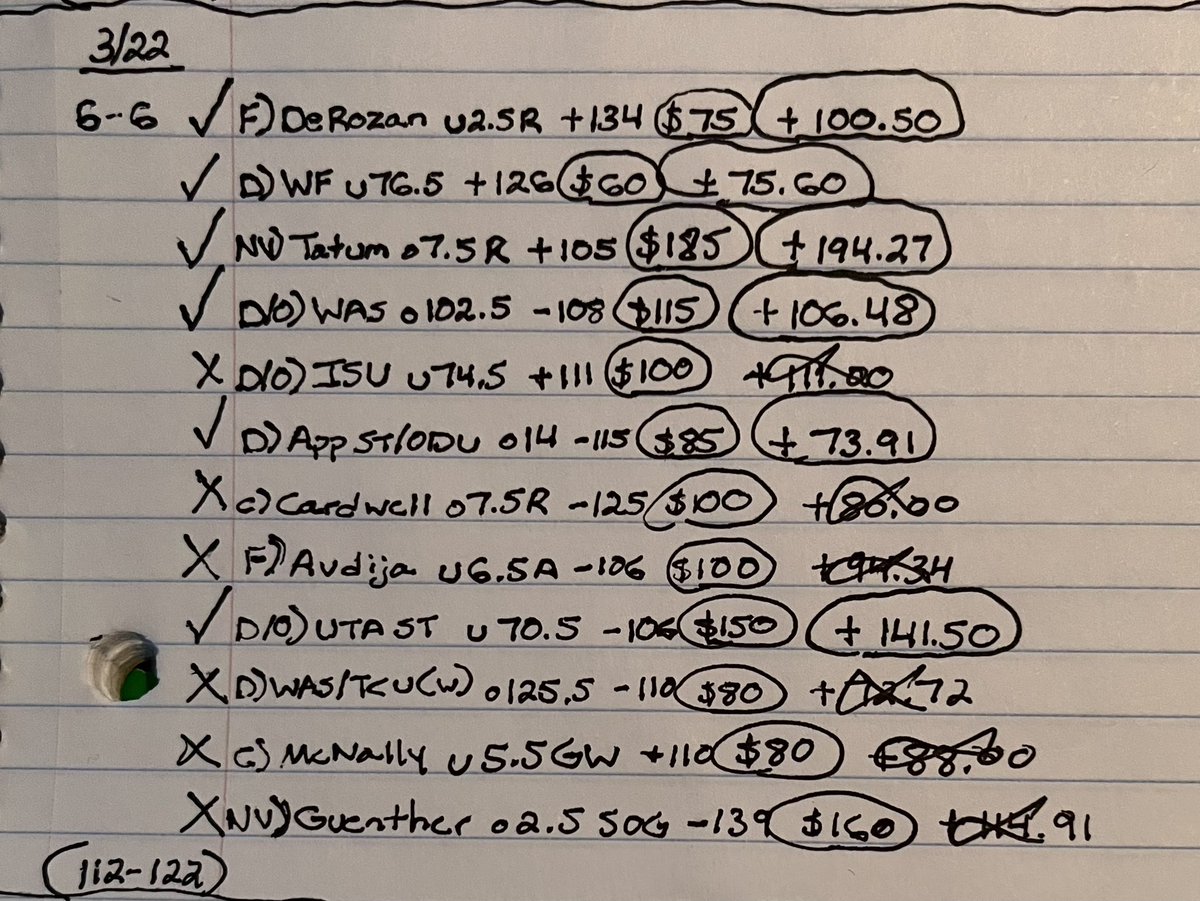 3/22
6-6 ✓ F) DeRozan u2.5R +134 $75 +100.50
✓ D) WF u76.5 +126 $60 +75.60
✓ NV) Tatum o7.5R +105 $185 +194.27
✓ D/O) WAS o102.5 -108 $115 +106.48
X D/O) ISU u74.5 +111 $100 +111.00
✓ D) App ST/ODU o14 -115 $85 +73.91
X C) Cardwell o7.5R -125 $100 +80.00
X F) Avdija u6.5A -106 $100 +94.34
✓ D/O) UTA ST u70.5 -106 $150 +141.50
X D) WAS/TCU(W) o125.5 -110 $80 +72.72
X C) McNally u5.5GW +110 $80 +88.00
X NV) Guenther o2.5 SOG -139 $160 +114.91
(112-122)